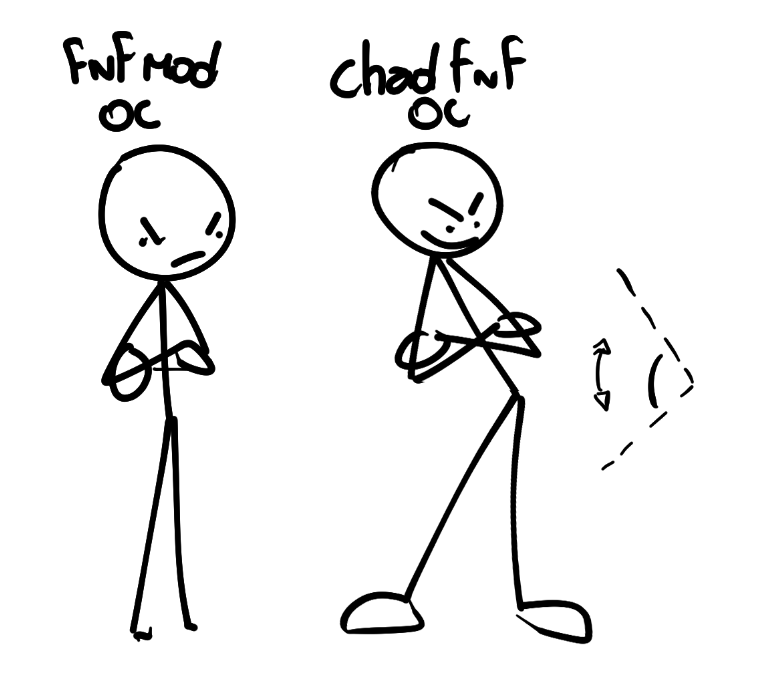 FNF Mod
OC
Chad FNF
OC